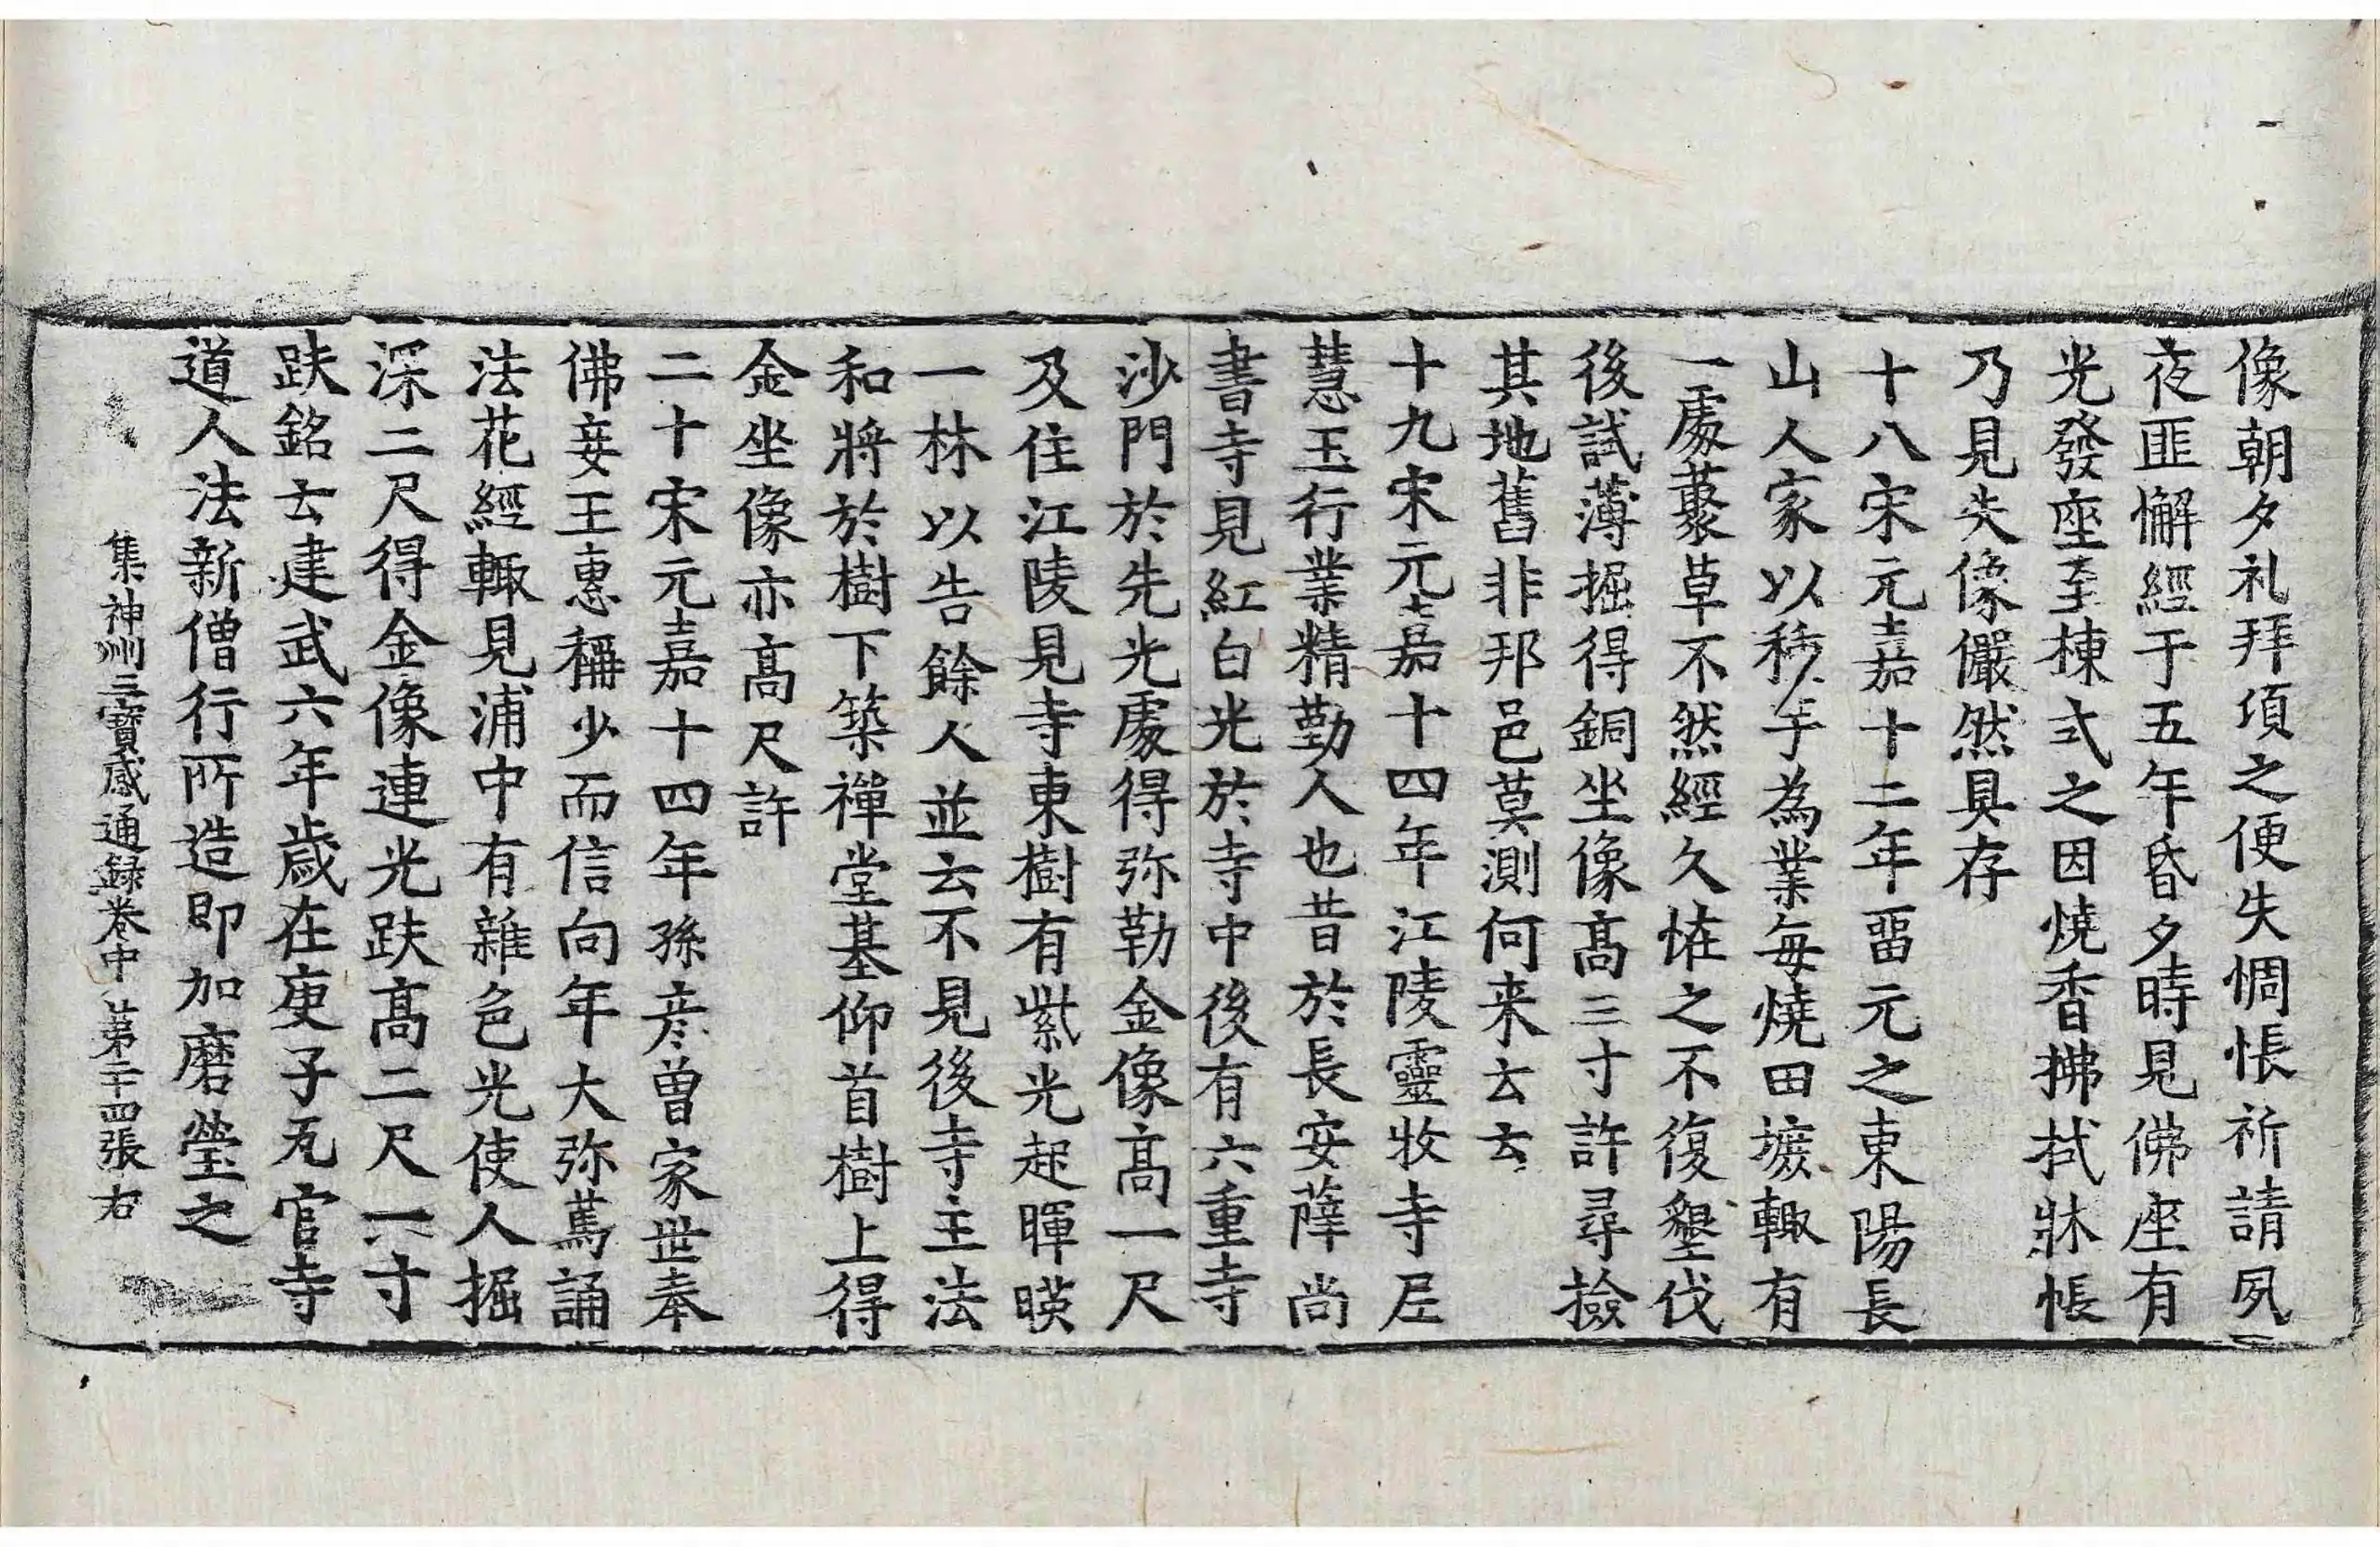 像朝夕礼拜項之便失惆悵祈請夙
夜匪懈經于五年昏夕時見佛座有
光發座至棟式之因燒香拂拭牀帳
乃見失像儼然具存
十八宋元嘉十二年留元之東陽長
山人家以種芋為業每燒田墢輙有
一處叢草不然經久恠之不復墾伐
後試薄掘得銅坐像髙三寸許尋撿
其地舊非邦邑莫測何来去云
十九宋元嘉十四年江陵靈牧寺尼
慧玉行業精勤人也昔於長安薛尚
書寺見紅白光於寺中後有六重寺
沙門於先光處得弥勒金像髙一尺
及住江陵見寺東樹有紫光起暉暎
一林以告餘人並云不見後寺主法
和將於樹下築禪堂基仰首樹上得
金坐像亦髙尺許
二十宋元嘉十四年孫彦曽家世奉
佛妾王惠稱少而信向年大弥篤誦
法花經輙見浦中有雜色光使人掘
深二尺得金像連光趺髙二尺一寸
趺銘云建武六年歲在庚子瓦官寺
道人法新僧行所造即加磨瑩之
集神州三寶感通録卷中 第二十四張 右